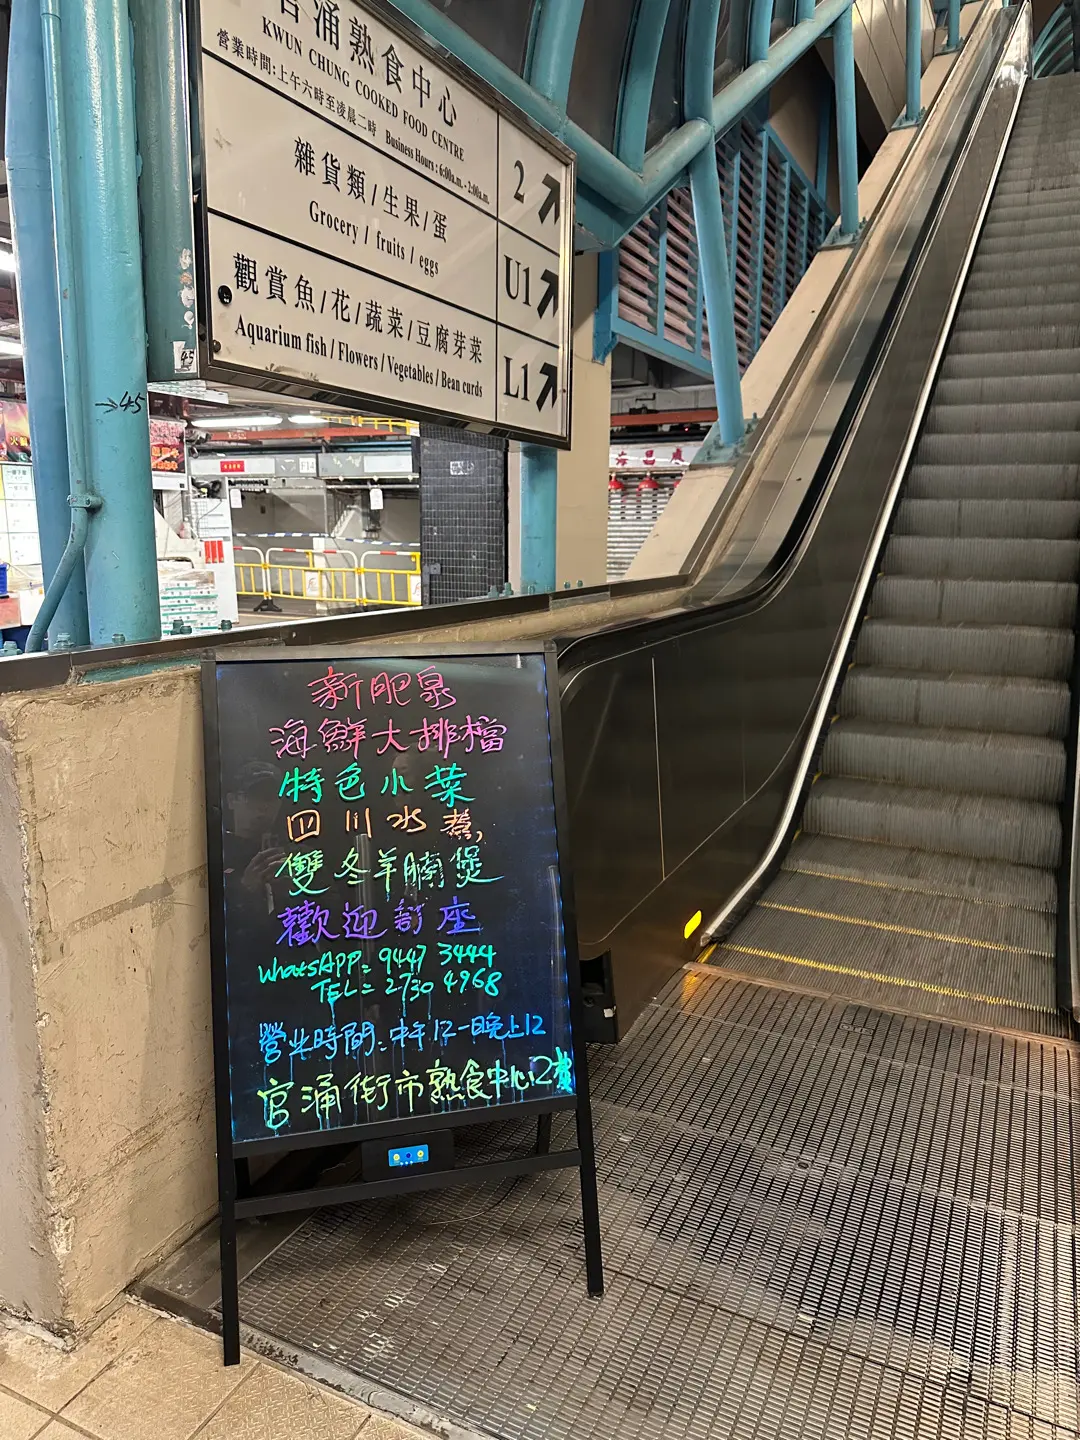 官涌熟食中心
KWUN CHUNG COOKED FOOD CENTRE
營業時間:上午六時至凌晨二時 Business Hours : 6:00a.m. - 2:00a.m.
2
雜貨類/生果/蛋
Grocery / fruits / eggs
U1
觀賞魚/花/蔬菜/豆腐芽菜
Aquarium fish / Flowers / Vegetables / Bean curds
L1
45
→45
F14
新肥泉
海鮮大排檔
特色小菜
四川水煮,
雙冬羊腩煲
歡迎訂座
WhatsAPP: 9447 3444
TEL: 2730 4968
營业時間:中午12-晚上12
官涌街市熟食中心2樓